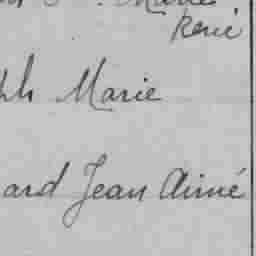 Marie
René
ph Marie
ard Jean Aimé